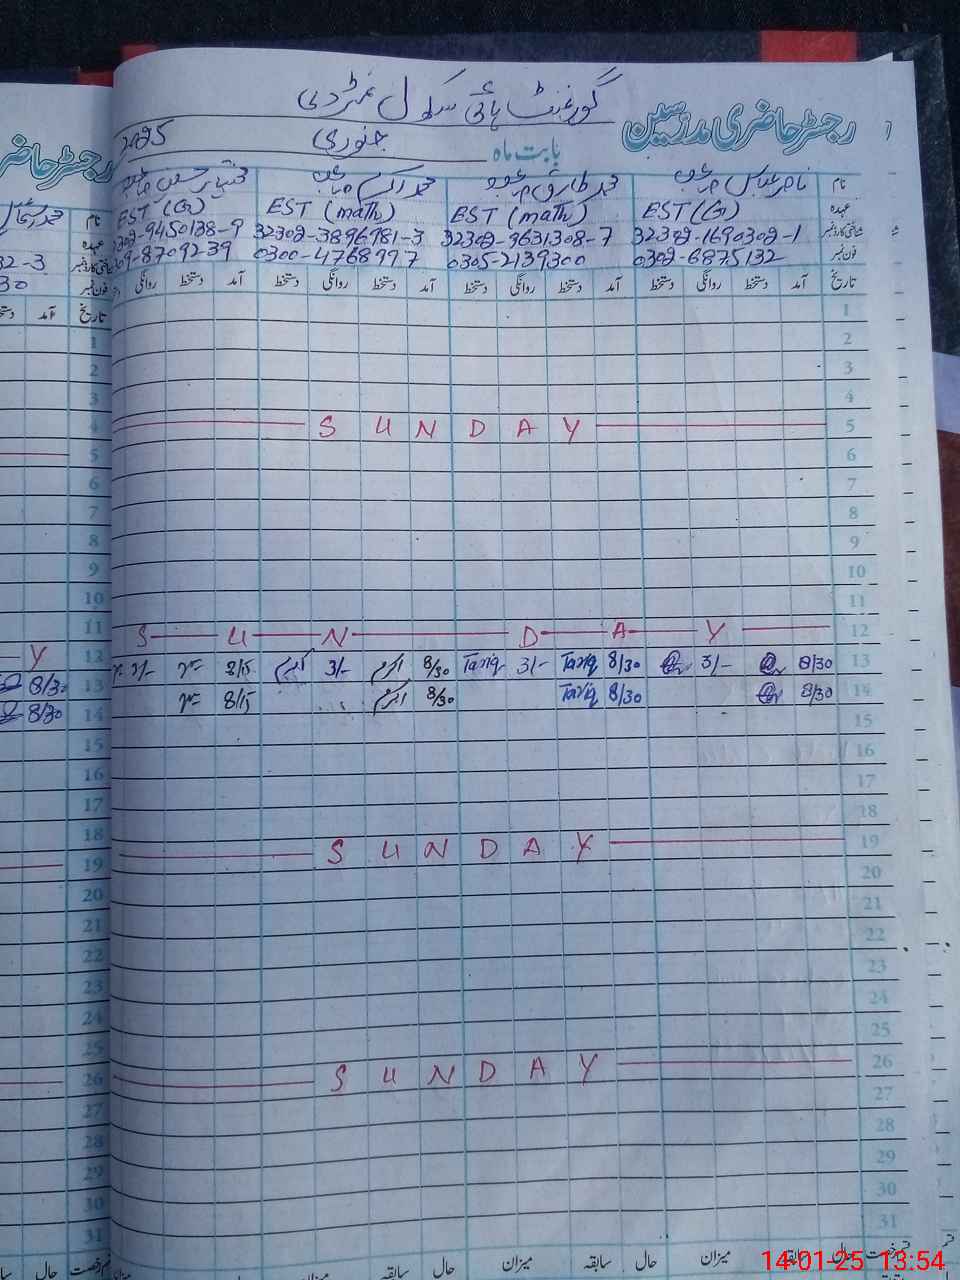 گورنمنٹ ہائی سکول
رجسٹر حاضری مدرسین
بابت ماہ جنوری 2025
نام ناصر عباس صاحب محمد طارق صاحب محمد اکرم صاحب
عہدہ EST (G) EST (math) EST (math) EST (G)
شناختی کارڈ نمبر 32302-1690302-1 32302-9631308-7 32302-3896981-3 9450138-9
فون نمبر 0302-6875132 0305-2139300 0300-4768997 8709239
تاریخ آمد دستخط روانگی دستخط آمد دستخط روانگی دستخط آمد دستخط روانگی دستخط آمد دستخط روانگی
1
2
3
4
5 SUNDAY
6
7
8
9
10
11
12 SUNDAY
13 8/30 3/- 8/30 Tariq 3/- Tariq 8/30 اکرم 3/- اکرم 8/15 3/-
14 8/30 8/30 Tariq 8/30 اکرم 8/15
15
16
17
18
19 SUNDAY
20
21
22
23
24
25
26 SUNDAY
27
28
29
30
31
حال سابقہ میزان حال سابقہ میزان حال سابقہ میزان
رجسٹر حاضر
نام
عہدہ
شناختی کارڈ نمبر 32-3
فون نمبر 30
تاریخ آمد
1
2
3
4
5
6
7
8
9
10
11
12 Y
13 8/30
14 8/30
15
16
17
18
19
20
21
22
23
24
25
26
27
28
29
30
31
14-01-25 13:54